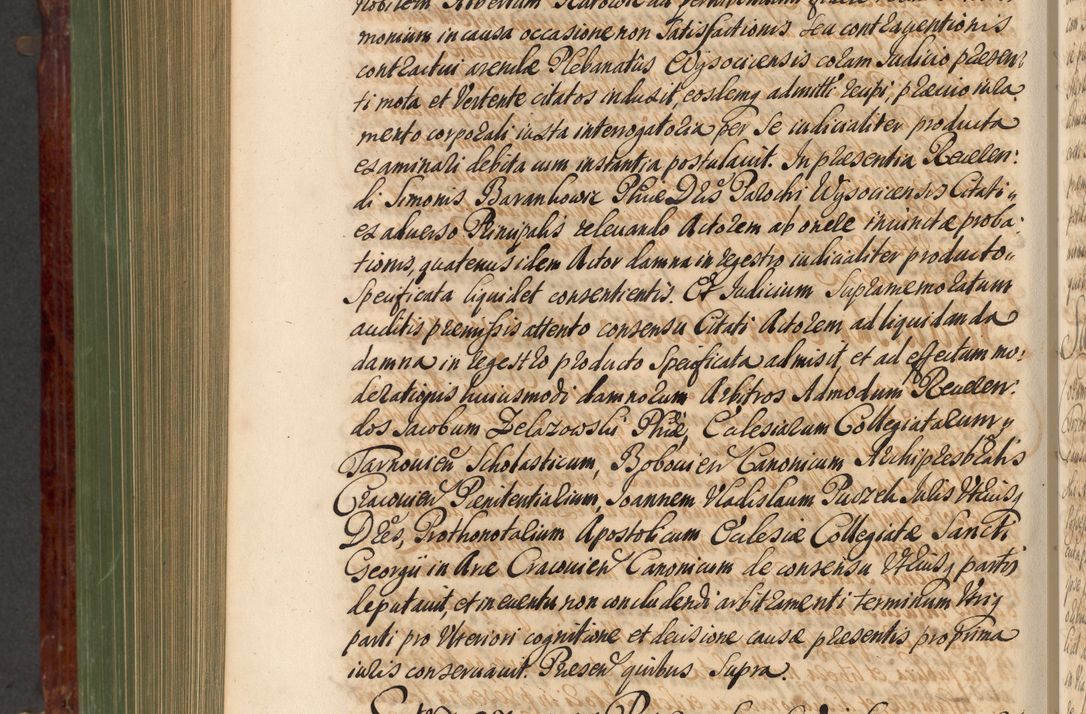 monium in causa occasione non satisfactionis seu contraventionis
contractui arendæ Plebanatûs Wysocicensis coram Judicio præsen:
ti mota et vertente citatos induxit, eosdemq admitti recipi, prævio iura
mento corporali iuxta interrogatoria per se iudicialiter producta
examinari debita cum instantia postulavit. In præsentia Reveren:
di Simonis Barankowic Phiæ Dris Parochi Wysocicensis Citati
ex adverso Principalis relevando Actorem ab onere
tionis, quatenus idem Actor damna in regestro iudicialiter producto
specificata liquidet consentientis. Et Judicium supramemoratum
auditis præmissis attento consensu Citati Actorem ad liquidanda
damna in regestro producto specificata admisit, et ad effectum mo:
derationis huiusmodi damnorum Arbitros Admodum RR Reveren:
dos Jacobum Zelazowski Phiæ, Ecclesiarum Collegiatarum
Tarnovien Scholasticum, Bobovien Canonicum Archipresbralis
Cracovien Pænitentiarium, Joannem Vladislaum Juris Utriusq
Dres, Prothonotarium Apostolicum Ecclesiæ Collegiatæ Sancti
Georgii in Arce Cracovien Canonicum de consensu Utriusq partis
deputavit, et in eventu non concludendi arbitramenti terminum Utriq
parti pro Ulteriori cognitione et decisione causæ præsentis pro prima
iuris conservavit. Præsen quibus supra.